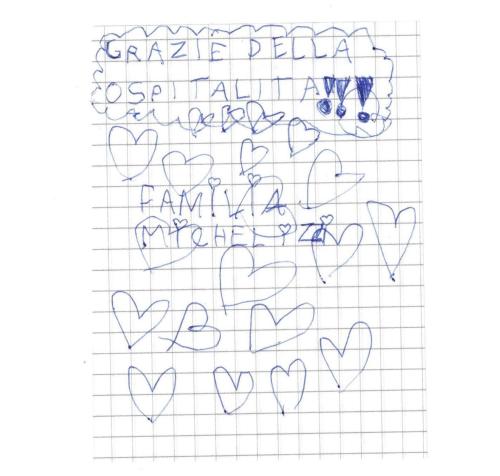 GRAZIE DELLA
OSPITALITA!!!
FAMiViA
MiCHELiZi